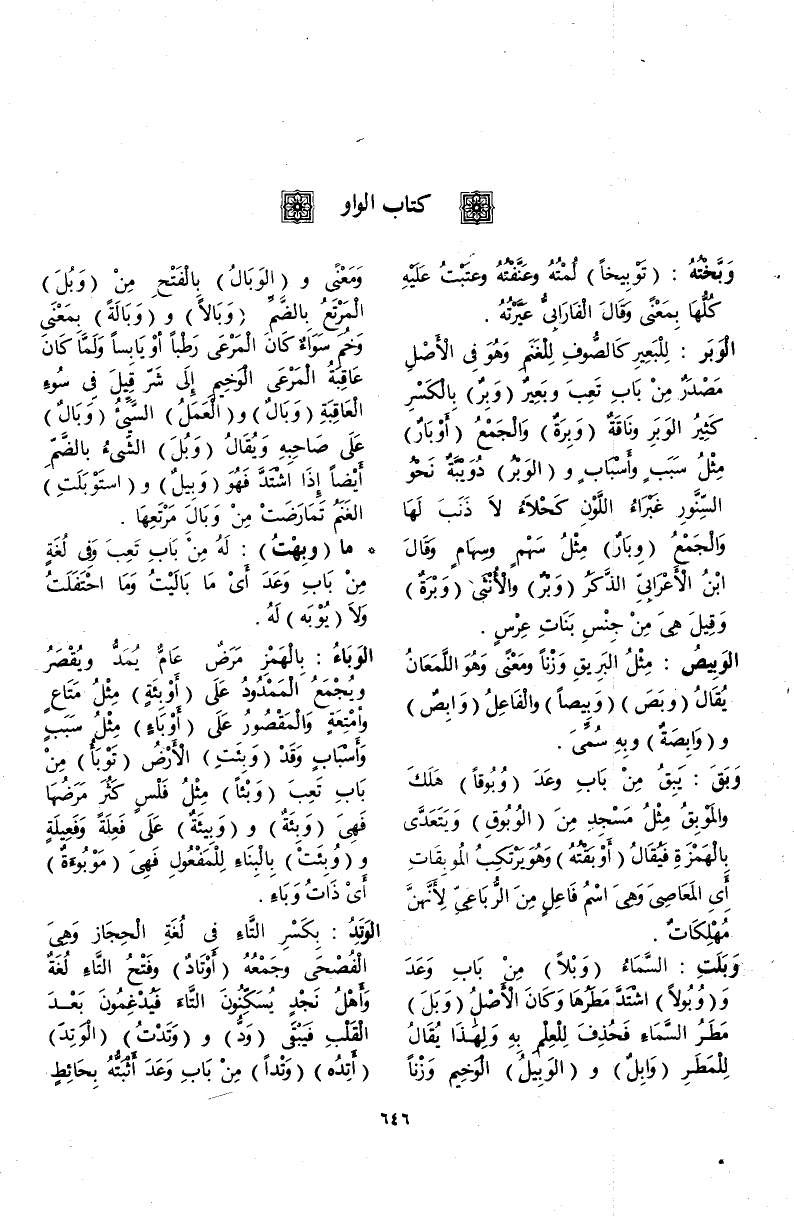 كتاب الواو
وَبَّخْتُهُ : ( تَوْبِيخاً ) لُمْتُهُ وعَنَّفْتُهُ وعتَبْتُ عَلَيْهِ
كُلُّهَا بِمَعْنًى وَقَالَ الْفَارَابِىُّ عَيَّرْتُهُ .
الْوَبَر : لِلْبَعِيرِ كَالصُّوفِ لِلْغَنَمِ وَهُوَ فِى الْأَصْلِ
مَصْدَرٌ مِنْ بَابِ تَعِبَ وَبَعِيرٌ ( وَبِرٌ ) بِالْكَسْرِ
كَثِيرُ الوَبَرِ ونَاقَةٌ ( وَبِرَةٌ ) وَالْجَمْعُ ( أَوْبَارٌ )
مِثْلُ سَبَبٍ وأَسْبَابٍ و ( الوَبْرُ ) دُوَيْبَّةٌ نَحْوُ
السِّنَّورِ غَبْرَاءُ اللَّوْنِ كَحْلاَءُ لاَ ذَنَبَ لَهَا
وَالْجَمْعُ ( وِبَارٌ ) مِثْلُ سَهْمٍ وسِهَامٍ وَقَالَ
ابْنُ الْأَعْرَابِىِّ الذَّكَرُ ( وَبْرٌ ) والْأُنْثَى ( وَبْرَةٌ )
وَقِيلَ هِىَ مِنْ جِنْسِ بَنَاتِ عِرْسٍ .
الوَبِيصُ : مِثْلُ البَرِيقِ وَزْناً ومَعْنًى وَهُوَ اللَّمَعَانُ
يُقَالُ ( وبَصَ ) ( وَبِيصاً ) والْفَاعِلُ ( وَابِصٌ )
و ( وَابِصَةٌ ) وبِهِ سُمِّىَ .
وَبَقَ : يَبِقُ مِنْ بَابِ وعَدَ ( وُبُوقاً ) هَلَكَ
والمَوْبِقُ مِثْلُ مَسْجِدٍ مِنَ ( الوُبُوقِ ) وَيَتَعَدَّى
بِالْهَمْزَةِ فَيُقَالُ ( أَوْبَقْتُهُ ) وَهُوَ يَرْتَكِبُ المُوبِقَاتِ
أَىِ المَعَاصِىَ وَهِىَ اسْمُ فَاعِلٍ مِنَ الرُّبَاعِىِّ لِأَنَّهُنَّ
مُهْلِكَاتٌ .
وَبَلَتِ : السَّمَاءُ ( وَبْلاً ) مِنْ بَابِ وَعَدَ
وَ ( وُبُولاً ) اشْتَدَّ مَطَرُهَا وَكَانَ الْأَصْلُ ( وَبَلَ )
مَطَرُ السَّمَاءِ فَحُذِفَ لِلْعِلْمِ بِهِ وَلِهٰذَا يُقَالُ
لِلْمَطَرِ ( وَابِلٌ ) و ( الوَبِيلُ ) الوَخِيم وَزْناً
وَمَعْنًى و ( الوَبَالُ ) بِالْفَتْحِ مِنْ ( وَبُلَ )
المَرْتَعُ بالضَّمِّ ( وَبَالاً ) و ( وَبَالَةً ) بِمَعْنَى
وَخُمَ سَوَاءٌ كَانَ المَرْعَى رَطْباً أوْ يَابِساً وَلَمَّا كَانَ
عَاقِبَةُ المَرْعَى الْوَخِيمِ إِلَى شَرٍّ قِيلَ فِى سُوءِ
الْعَاقِبَةِ ( وَبَالٌ ) و ( الْعَمَلُ ) السَّيِّئُ ( وَبَالٌ )
عَلَى صَاحِبِهِ وَيُقَالُ ( وَبُلَ ) الشَّىءُ بالضَّمِّ
أَيْضاً إِذَا اشْتَدَّ فَهُوَ ( وَبِيلٌ ) و ( استَوْبَلَتِ )
الغَنَمُ تَمَارَضَتْ مِنْ وَبَالَ مَرْتَعِهَا .
* ما ( وبِهْتُ ) : لَهُ مِنْ بَابِ تَعِبَ وَفِى لُغَةٍ
مِنْ بَابِ وَعَدَ أَىْ مَا بَالَيْتُ وَمَا احْتَفَلْتُ
وَلاَ ( يُوْبَه ) لَهُ .
الوَبَاءُ : بِالْهَمْزِ مَرَضٌ عَامٌّ يُمَدُّ ويُقْصَرُ
ويُجْمَعُ الْمَمْدُودُ عَلَى ( أَوْبِئَةٍ ) مِثْلُ مَتَاعٍ
وأمْتِعَةٍ وَالْمَقْصُورُ عَلَى ( أَوْبَاءٍ ) مِثْلُ سَبَبٍ
وَأَسْبَابٍ وَقَدْ ( وَبِئَتِ ) الْأَرْضُ ( تَوْبَأُ ) مِنْ
بَابِ تَعِبَ ( وَبْئاً ) مِثْلُ فَلْسٍ كَثُرَ مَرَضُهَا
فَهِىَ ( وَبِئَةٌ ) و ( وَبِيئَةٌ ) عَلَى فَعِلَةٍ وَفَعِيلَةٍ
و ( وُبِئَتْ ) بِالْبِنَاءِ لِلْمَفْعُولِ فَهِىَ ( مَوْبُوءَةٌ )
أَىْ ذَاتُ وَبَاءٍ .
الوَتِدُ : بِكَسْرِ التَّاءِ فِى لُغَةِ الحِجَازِ وَهِىَ
الْفُصْحَى وجَمْعُهُ ( أَوْتَادٌ ) وفَتْحُ التَّاءِ لُغَةٌ
وَأَهْلُ نَجْدٍ يُسَكِّنُونَ التَّاءَ فَيُدْغِمُونَ بَعْدَ
القَلْبِ فَيَبْقَى ( وَدٌّ ) و ( وَتَدْتُ ) ( الْوَتِدَ )
( أَتِدُه ) ( وَتْداً ) مِنْ بَابِ وَعَدَ أَثْبَتُّهُ بِحَائِطٍ
٦٤٦